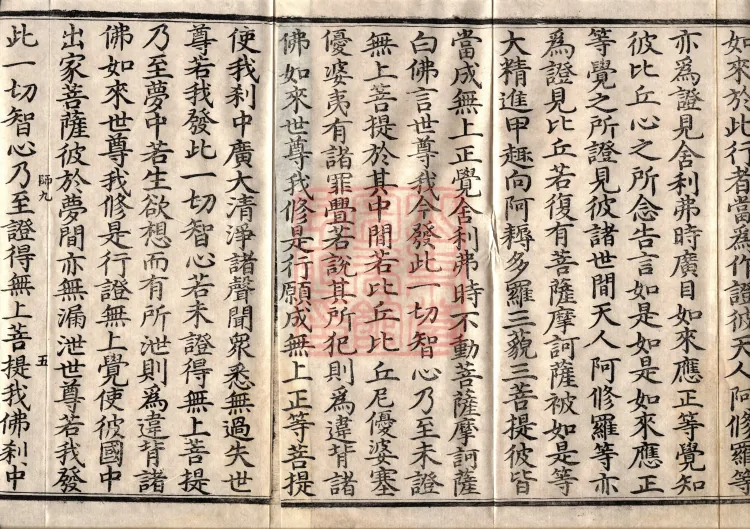 如來於此行者當為作證彼天人阿修羅等
亦為證見舍利弗時廣目如來應正等覺知
彼比丘心之所念告言如是如是如來應正
等覺之所證見彼諸世間天人阿修羅等亦
為證見比丘若復有菩薩摩訶薩被如是等
大精進甲趣向阿耨多羅三藐三菩提彼皆
當成無上正覺舍利弗時不動菩薩摩訶薩
白佛言世尊我今發此一切智心乃至未證
無上菩提於其中間若比丘比丘尼優婆塞
優婆夷有諸罪舋若說其所犯則為違背諸
佛如來世尊我修是行願成無上正等菩提
使我剎中廣大清淨諸聲聞眾悉無過失世
尊若我發此一切智心若未證得無上菩提
乃至夢中若生欲想而有所泄則為違背諸
佛如來世尊我修是行證無上覺使彼國中
出家菩薩彼於夢間亦無漏泄世尊若我發
師九 五
此一切智心乃至證得無上菩提我佛剎中